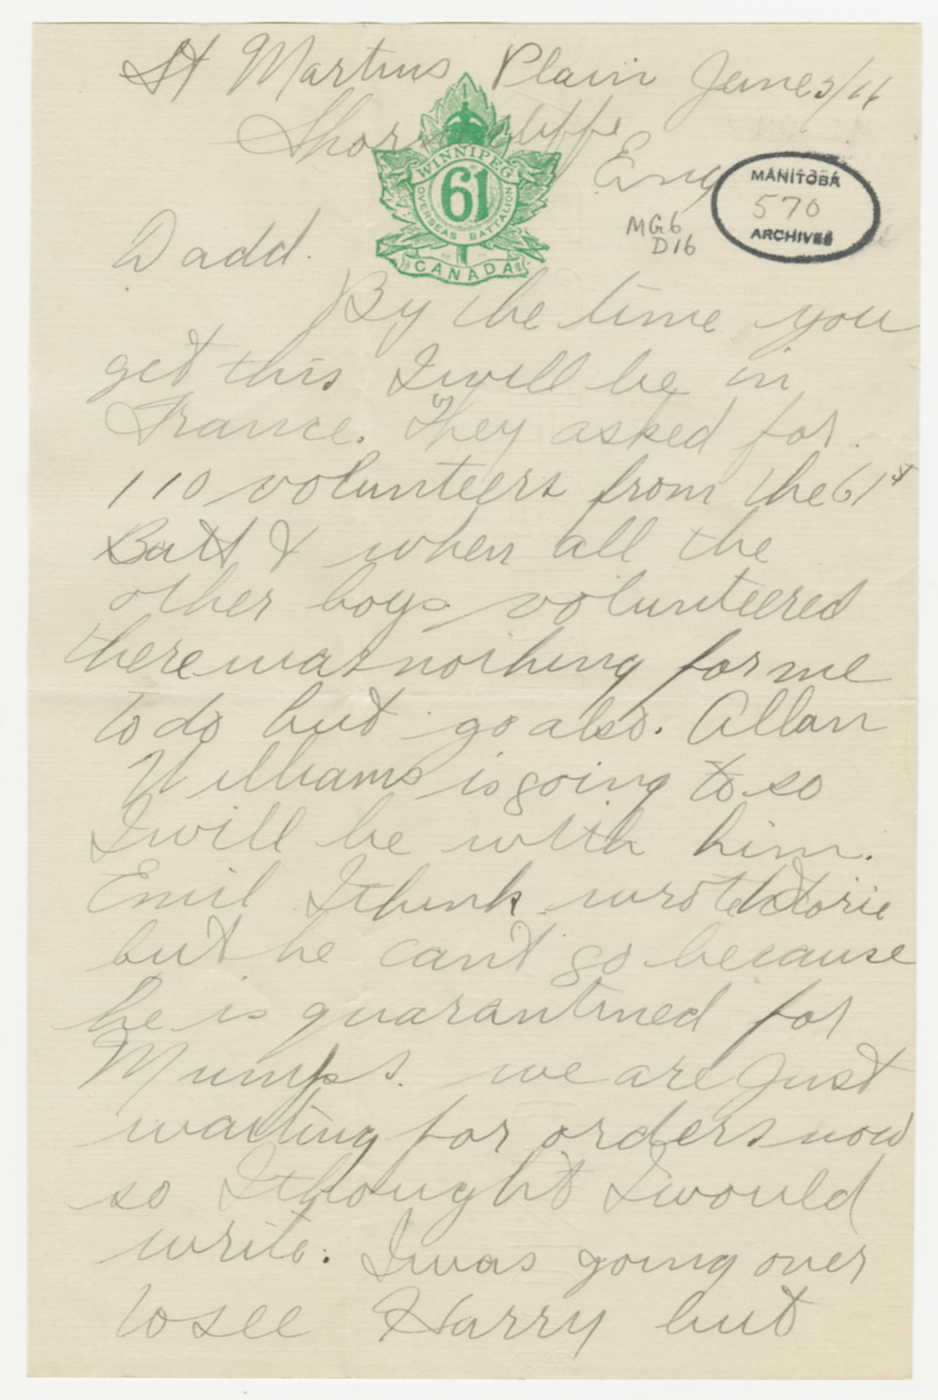 St Martins Plain June 3/16
Shorncliffe
Eng
WINNIPEG
61
OVERSEAS BATTALION
CANADA
MANITOBA
570
ARCHIVES
MG6
D16
Dadd.
By the time you
get this I will be in
France. They asked for
110 volunteers from the 61st
Batt & when all the
other boys volunteered
there was nothing for me
to do but go also. Allan
Williams is going to so
I will be with him.
Emil I think wrote
but he can't go because
he is quarantined for
Mumps. we are just
waiting for orders now
so I thought I would
write. I was going over
to see Harry but